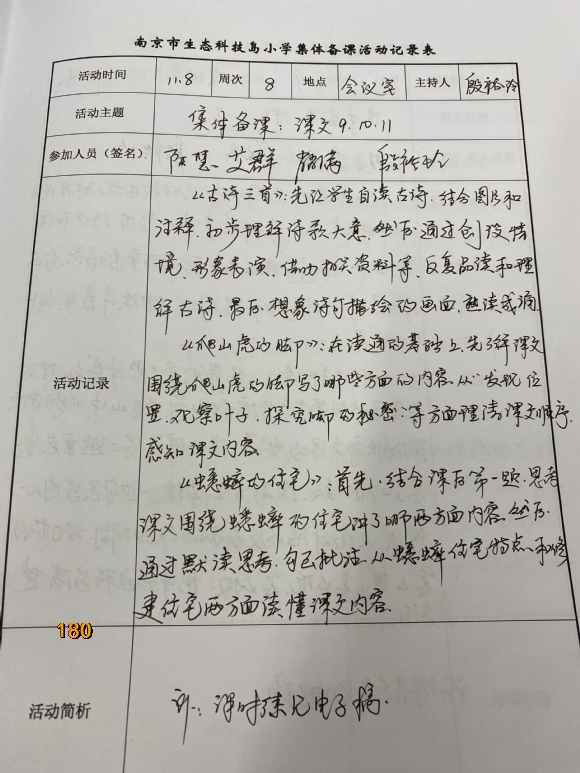 南京市生态科技岛小学集体备课活动记录表
活动时间 11.8 周次 8 地点 会议室 主持人 殷裕玲
活动主题 集体备课：课文9.10.11
参加人员（签名） 陈慧 艾群 殷裕玲
《古诗三首》：先让学生自读古诗.结合图片和
注释.初步理解诗歌大意.然后.通过创设情
境.形象表演.借助相关资料等.反复品读和理
解古诗.最后.想象诗句描绘的画面.熟读成诵.
《爬山虎的脚》：在读通的基础上.先了解课文
活动记录
围绕爬山虎的脚写了哪些方面的内容.从"发现位
置.观察叶子.探究脚的秘密"等方面理清课文顺序.
感知课文内容.
《蟋蟀的住宅》：首先.结合课后第一题.思考
课文围绕蟋蟀的住宅讲了哪两方面内容.然后.
通过默读思考.自己批注.从蟋蟀住宅特点和修
建住宅两方面读懂课文内容.
180
活动简析
课时练见电子稿.